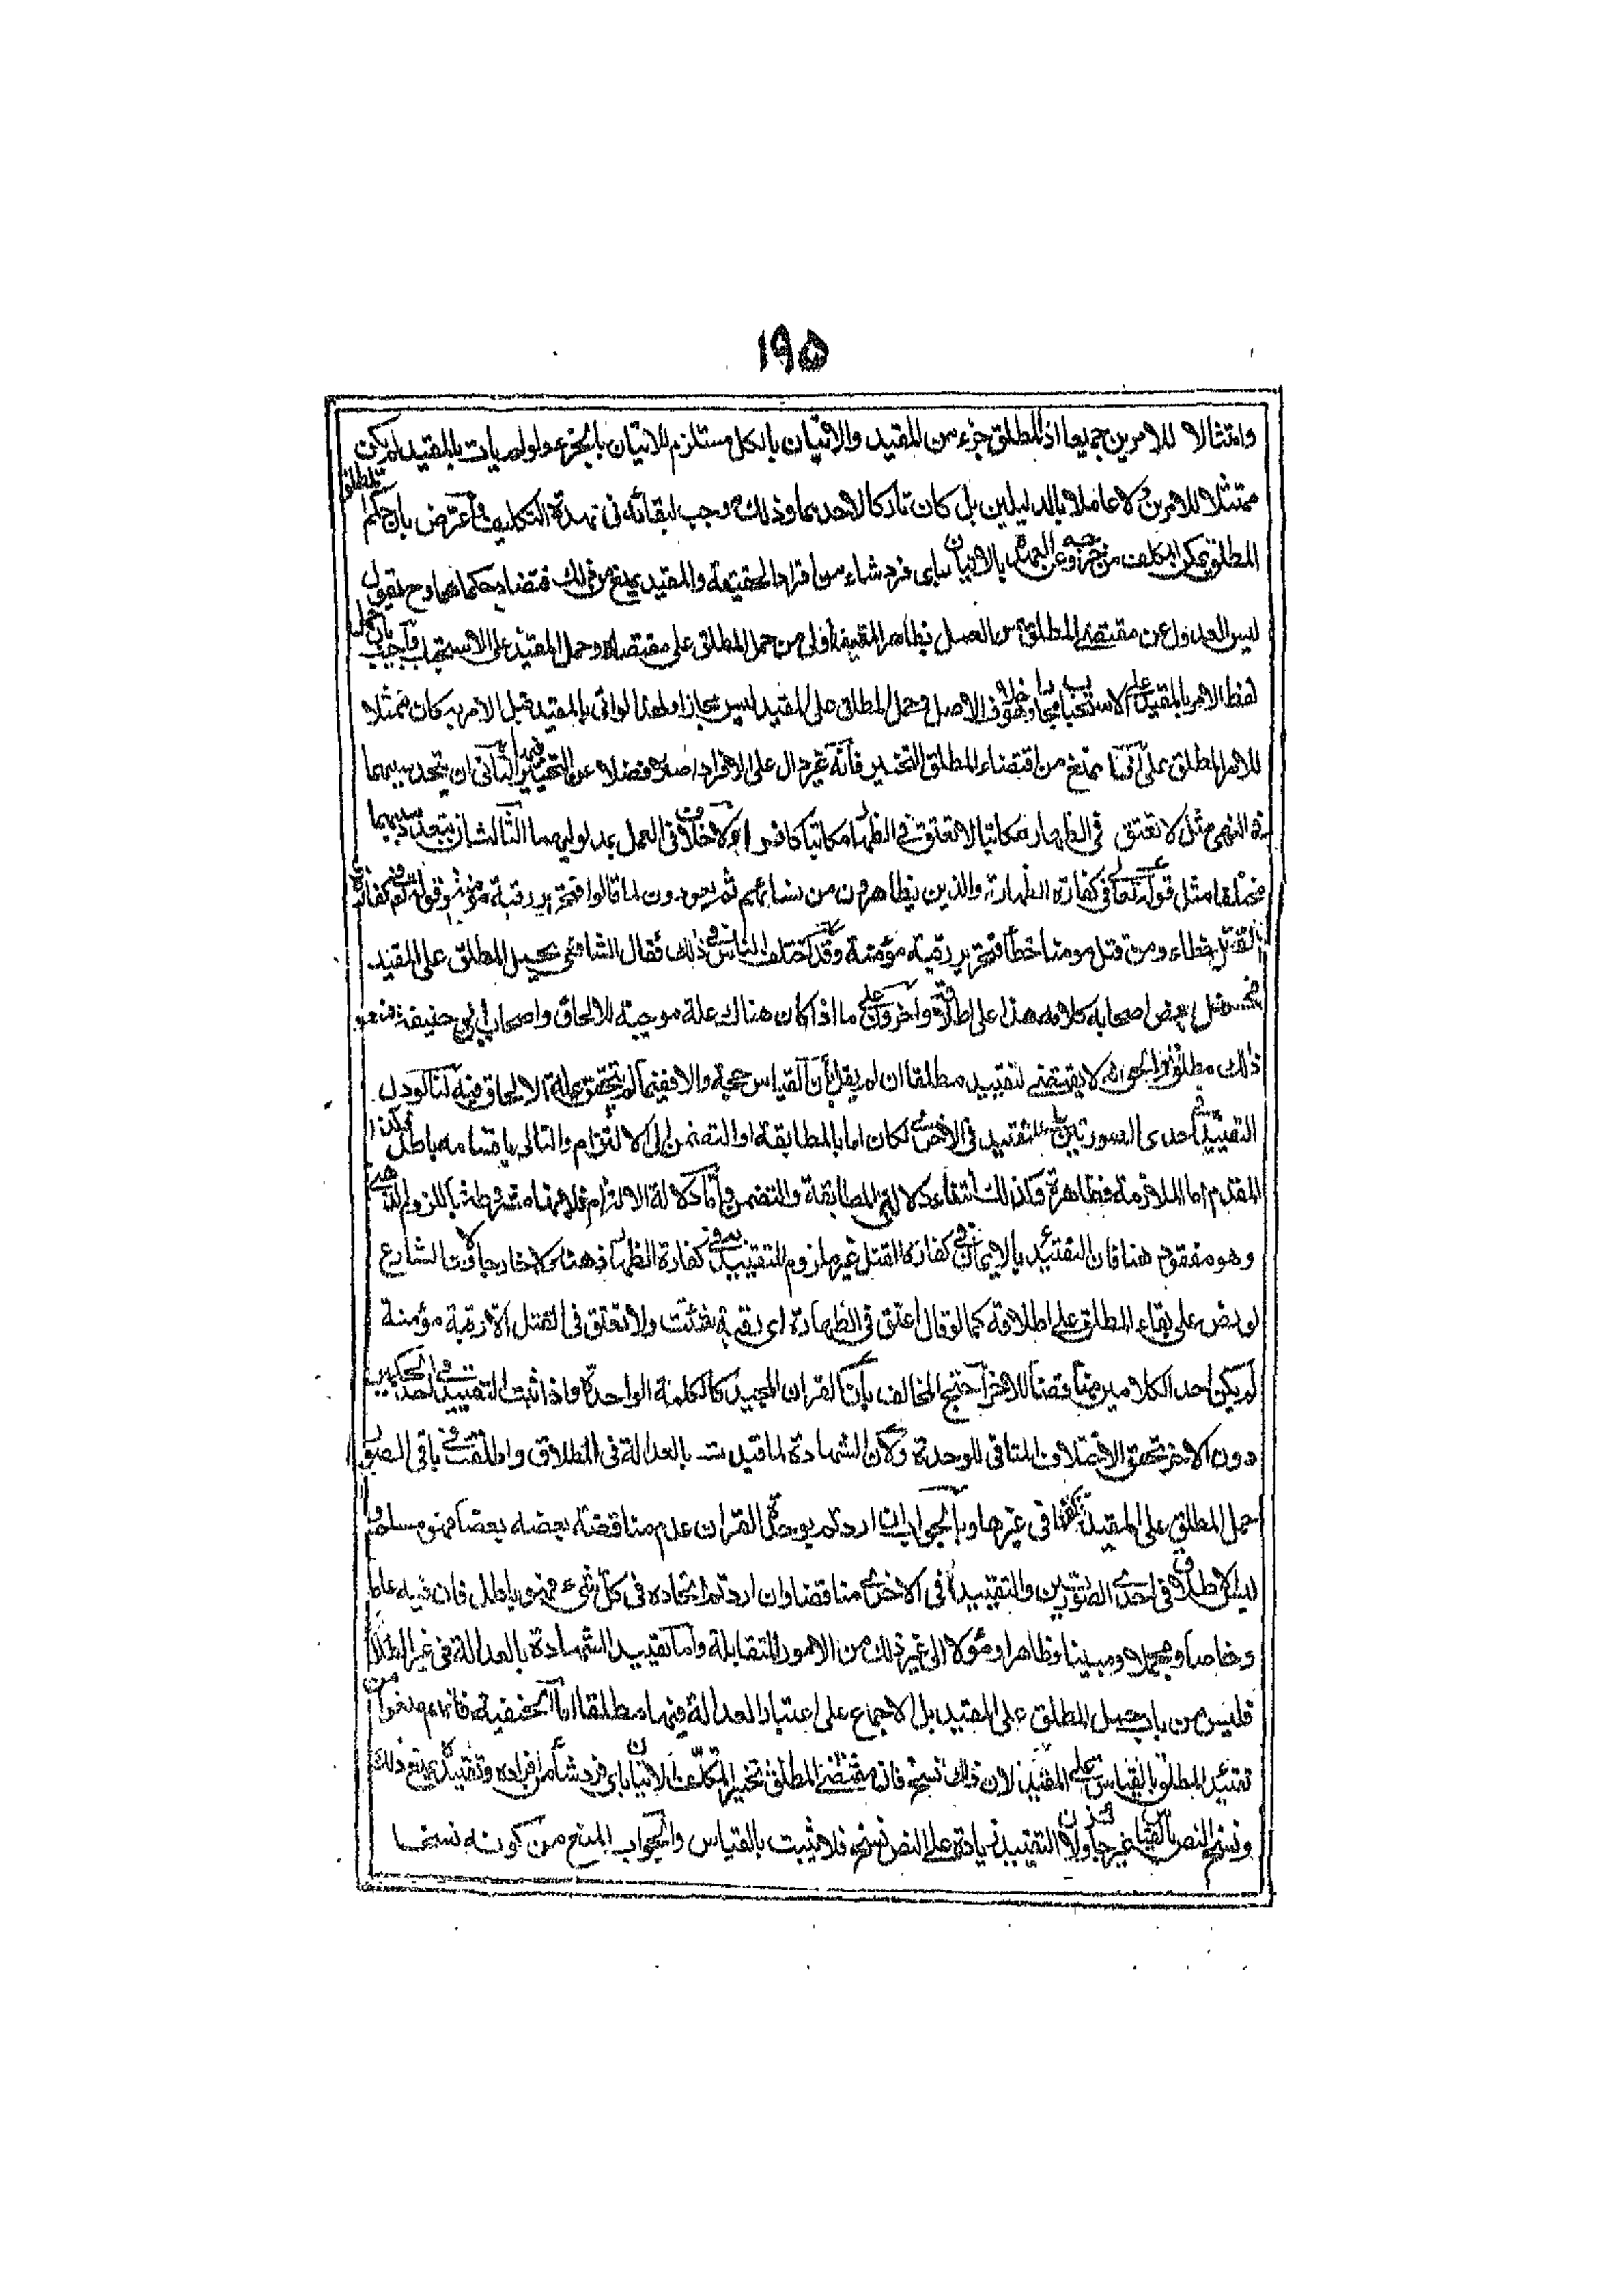 ١٩٥
وامتثالا للامرين جميعا اذ المطلق جزء من المقيد والاتيان بالكل مستلزم للاتيان بالجزء ولو لم يات بالمقيد لم يكن
ممتثلا للامرين ولا عاملا بالدليلين بل كان تاركا لاحدهما وذلك يوجب لبقائه فى عهدة التكليف واعترض بان حكم المطلق
المطلق تمكن المكلف من خروجه عن العهدة بالاتيان باى فرد شاء من افراد الحقيقة والمقيد يمنع من ذلك فتضاد حكماهما وح نقول
ليس العدول عن مقتضى المطلق من العمل بظاهر المقيد اولى من حمل المطلق على مقتضاه وحمل المقيد على الاستحباب واجيب بان حمل
لفظ الامر بالمقيد على الاستحباب مجاز وهو خلاف الاصل وحمل المطلق على المقيد ليس مجازا ولهذا لو اتى بالمقيد قبل الامر به كان ممتثلا
للامر المطلق على نمنع من اقتضاء المطلق التخيير فانه غير دال على الافراد اصلا فضلا عن التخيير فيها الثانى ان يتحد سببهما
فى النهى مثل لا تعتق فى الظهار مكاتبا لا تعتق فى الظهار مكاتبا كافرا ولا خلاف فى العمل بمدلوليهما الثالث ان يتعدد سببهما
مختلفا مثل قوله تعالى فى كفارة الظهار والذين يظاهرون من نسائهم ثم يعودون لما قالوا فتحرير رقبة وقوله فى كفارة
القتل خطاء ومن قتل مومنا خطأ فتحرير رقبة مؤمنة وقد اختلف الناس فى ذلك فقال الشافعى بحمل المطلق على المقيد
فحمل بعض اصحابه كلامه هذا على اطلاقه واخرون على ما اذا كان هناك علة موجبة للالحاق واصحاب ابى حنيفة منعوا
ذلك مطلقا والحق انه لا يقتضى لتقييد مطلقا ان لم يقل بأن القياس حجة والا ففيما لم يتحقق علة الالحاق فيه لنا لو دل
التقييد فى احدى الصورتين على التقييد فى الاخرى لكان اما بالمطابقة او التضمن او الالتزام والتالى باقسامه باطل فكذا
المقدم اما الملازمة فظاهرة وكذلك انتفاء دلالتى المطابقة والتضمن واما دلالة الالتزام فلانها مشروطة باللزوم الذهنى
وهو مفقود هنا فان التقييد بالايمان فى كفارة القتل غير ملزوم للتقييد به فى كفارة الظهار ذهنا ولا خارجا لان الشارع
لو نص على بقاء المطلق على اطلاقه كما لو قال اعتق فى الظهار اى رقبة شئت ولا تعتق فى القتل الا رقبة مؤمنة
لم يكن احد الكلامين مناقضا للاخر احتج المخالف بان القران المجيد كالكلمة الواحدة فاذا ثبت التقييد فى احد الحكمين
دون الاخر تحقق الاختلاف المنافى للوحدة ولان الشهادة لما قيدت بالعدالة فى الطلاق واطلقت فى باقى الصور
حمل المطلق على المقيد فى غيرها والجواب ان اردتم بوحدة القران عدم مناقضة بعضه بعضا فهو مسلم
ليس الاطلاق فى احدى الصورتين والتقييد فى الاخرى مناقضا وان اردتم اتحاده فى كل شىء فهو باطل فان فيه عاما
وخاصا ومجملا ومبينا وظاهرا ومؤولا الى غير ذلك من الامور المتقابلة واما تقييد الشهادة بالعدالة فى غير الطلاق
فليس من باب حمل المطلق على المقيد بل الاجماع على اعتبار العدالة فيها مطلقا اما الحنفية فانهم منعوا من
تقييد المطلق بالقياس على المقيد لان ذلك نسخ فان مقتضى المطلق تخيير المكلف الاتيان باى فرد شاء من افراده وتقييده يمنع ذلك
ونسخ النص بالقياس غير جائز ولان التقييد زيادة على النص نسخ فلا يثبت بالقياس والجواب المنع من كونه نسخا